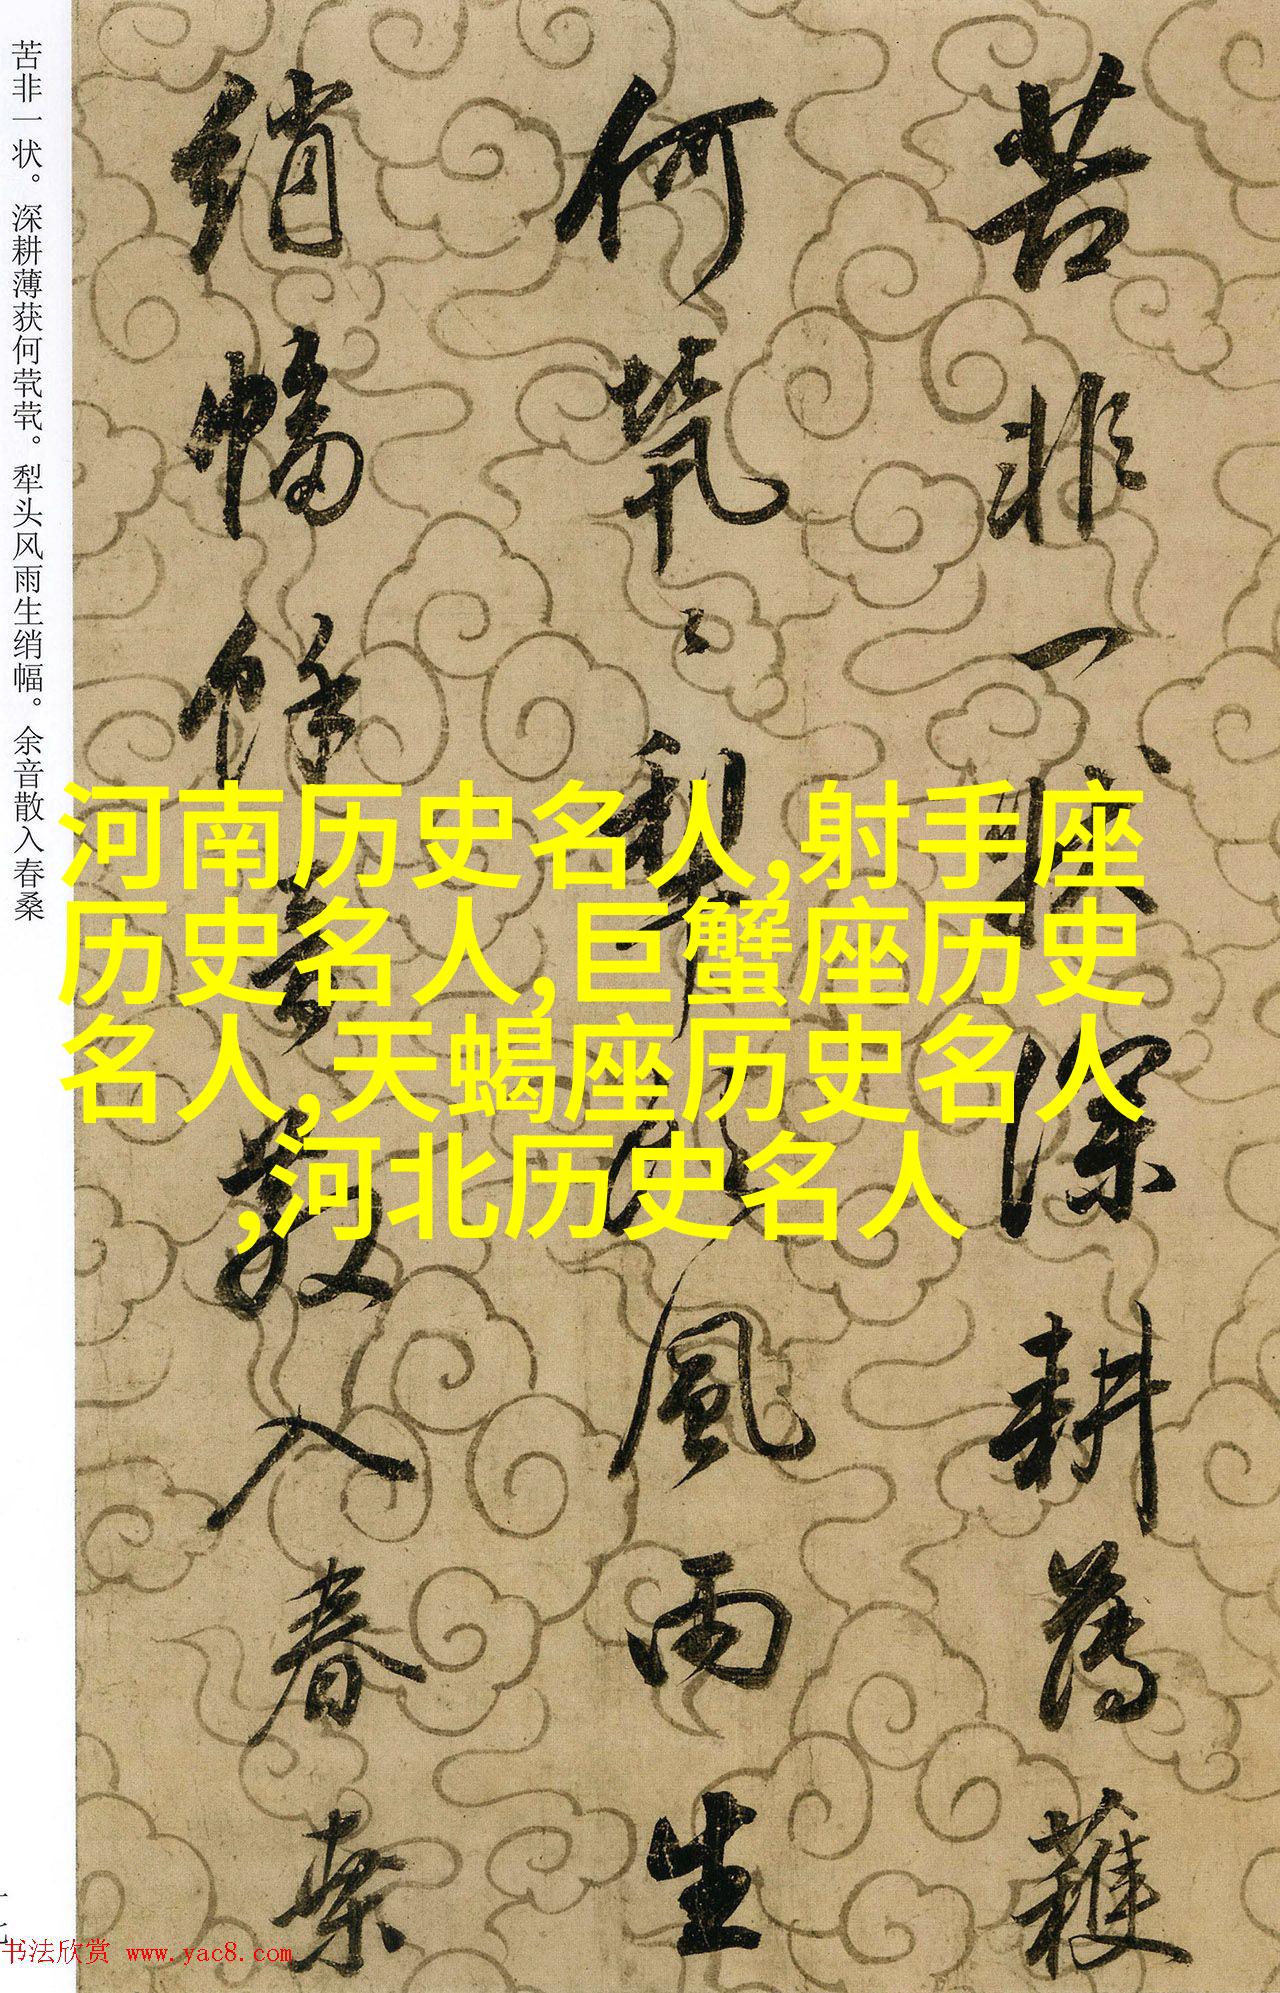 苦非一状。深耕薄获何茕茕。犁头风雨生绡幅。余音散入春桑
苦非一状深耕薄穫
何茕〻犁头風雨生
绡幅馀音散入春桑
河南历史名人,射手座
历史名人,巨蟹座历史
名人,天蝎座历史名人
,河北历史名人
书法欣赏 www.yac8.com